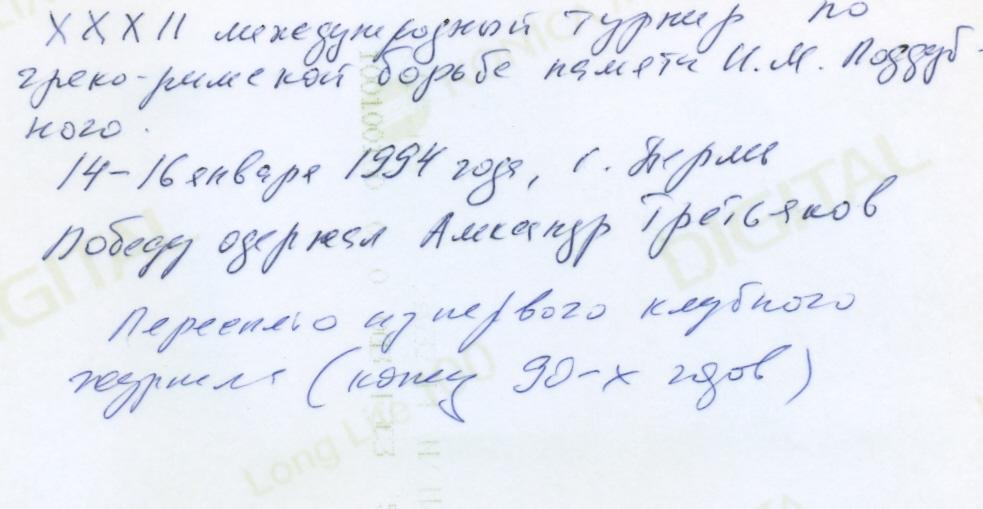 XXXII международный турнир по
греко-римской борьбе памяти И.М. Поддуб-
ного.
14-16 января 1994 года, г. Пермь
Победу одержал Александр Третьяков
Переснято из первого клубного
журнала (конец 90-х годов)
DIGITAL
Long Life 100